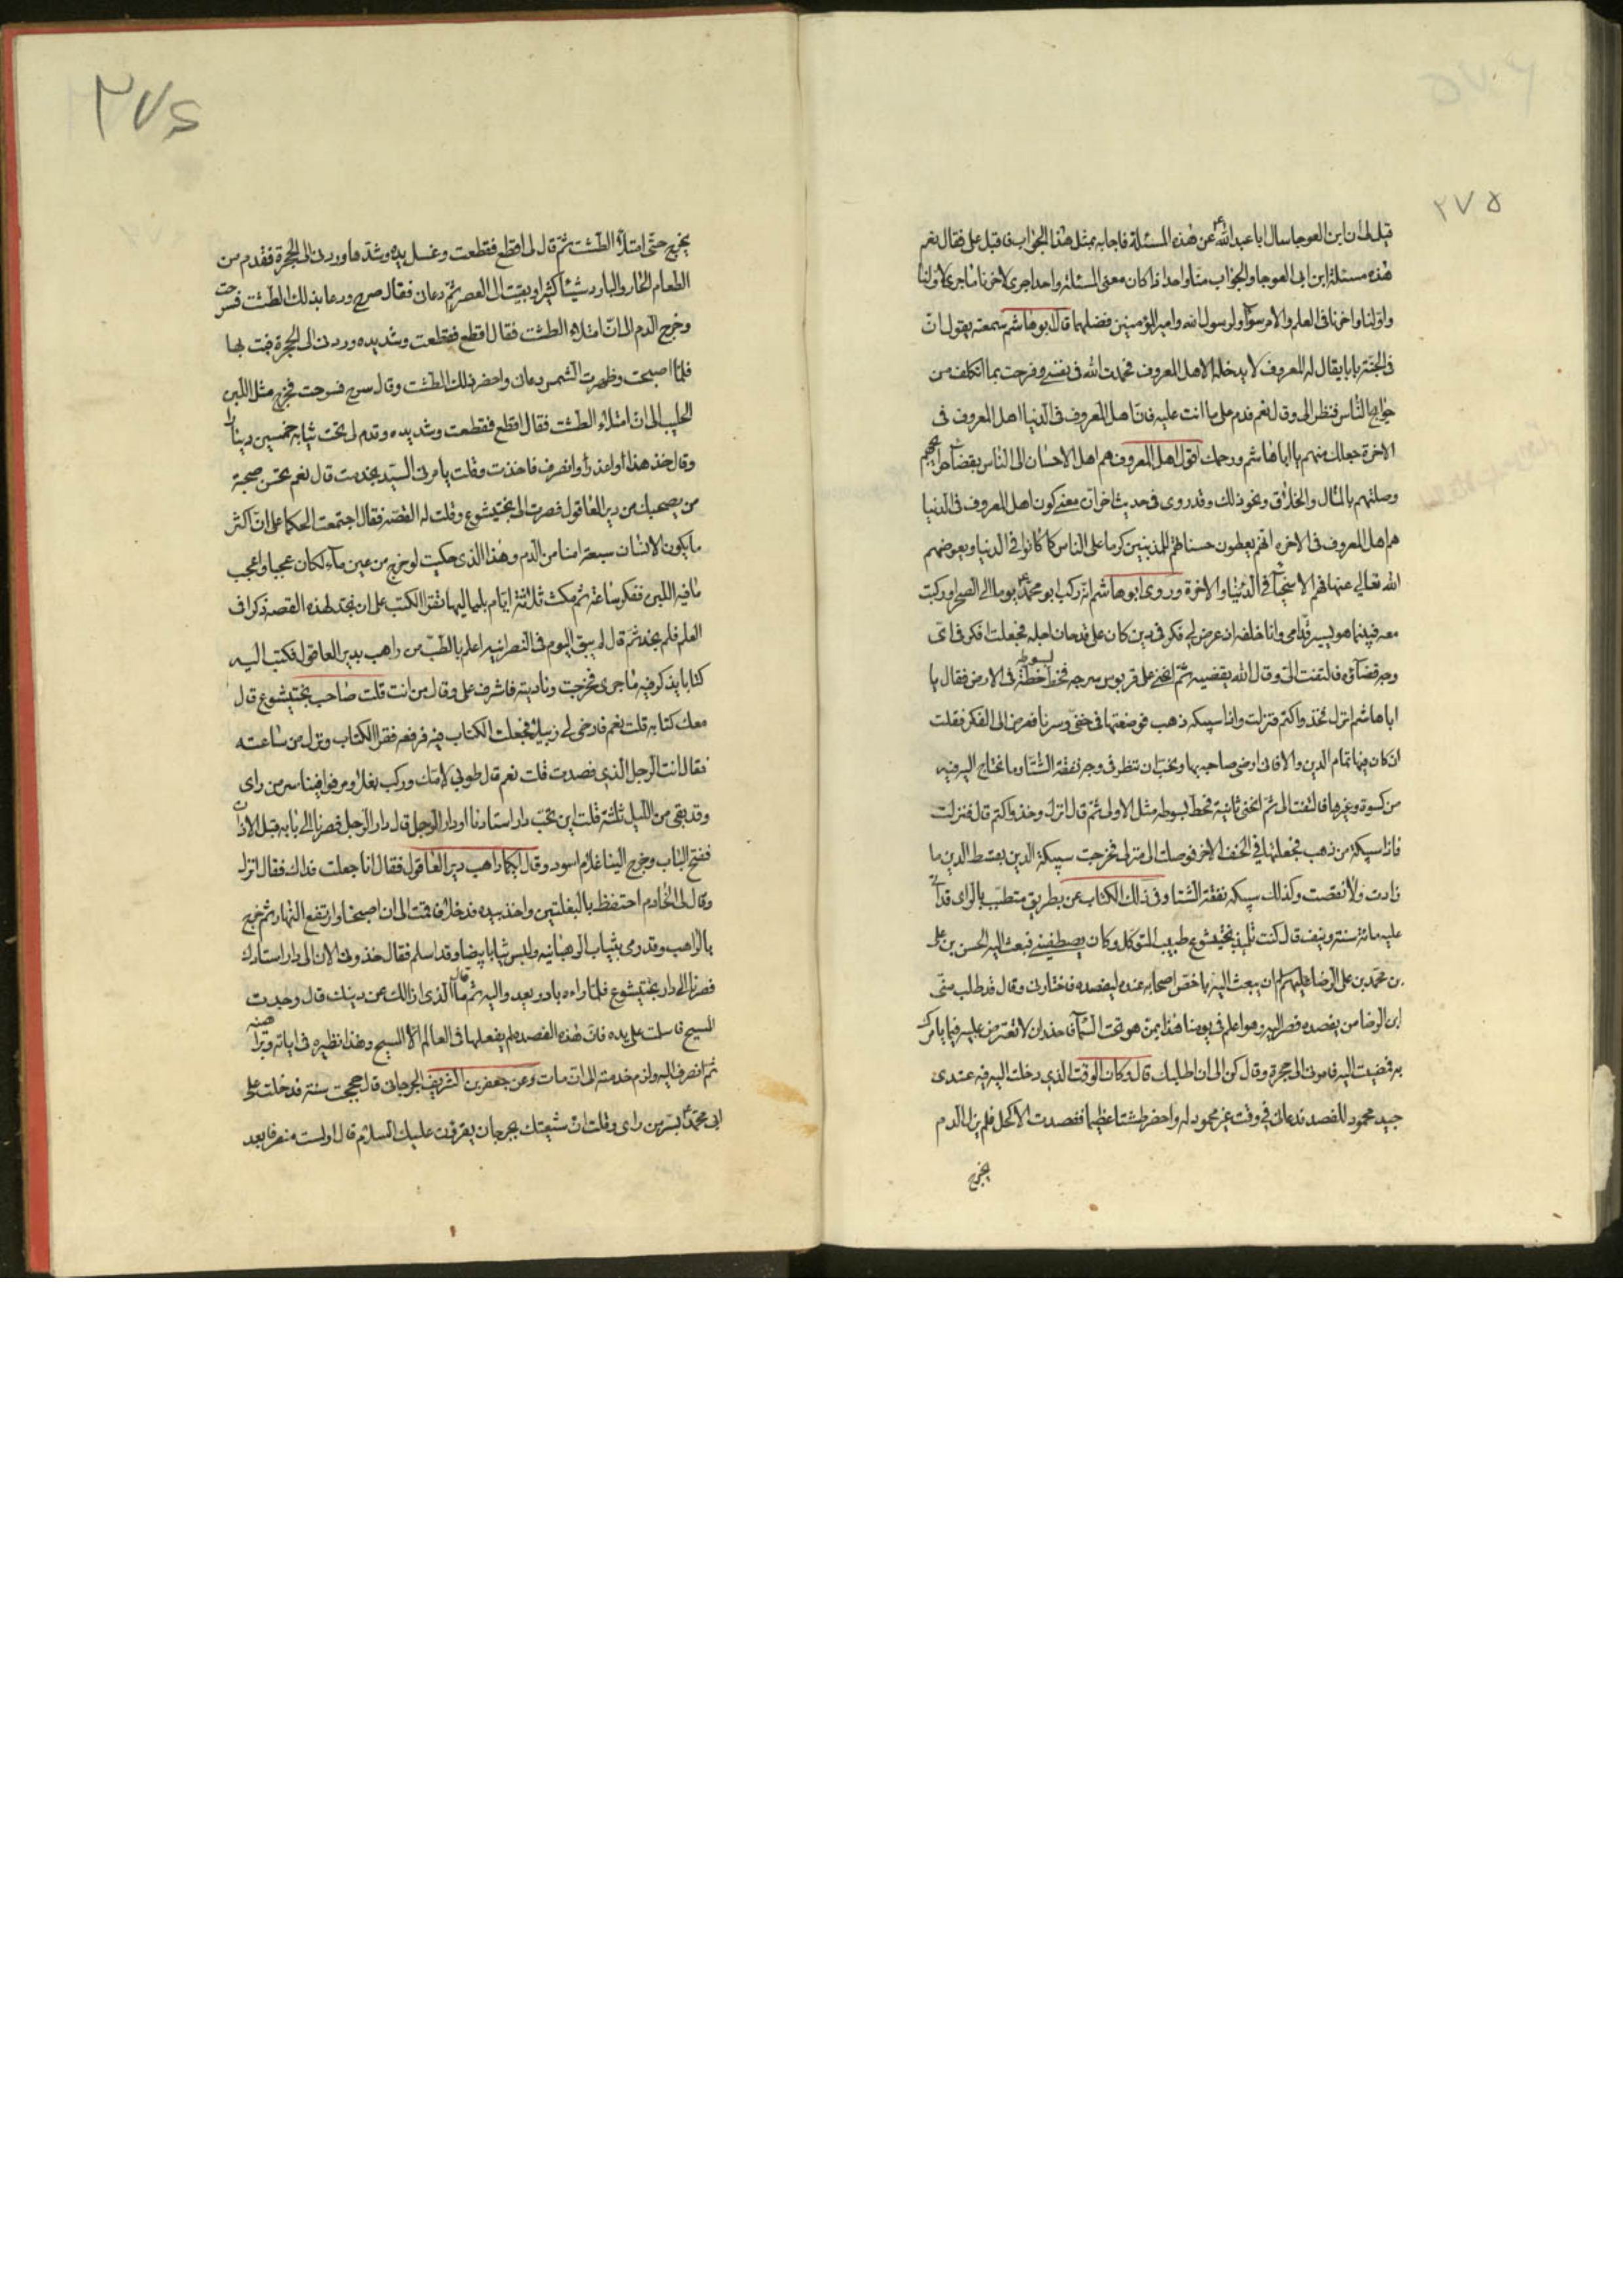 ٢٧٥
قيل لى ان ابن ابى العوجا سال ابا عبد الله ع عن هذه المسئلة فاجابه بمثل هذا الجواب فاقبل على فقال نعم
هذه مسئلة ابن ابى العوجا والجواب منا واحد اذا كان معنى المسئلة واحدا جرى لاخرنا ما جرى لاولنا
واولنا واخرنا فى العلم والامر سواء ولرسول الله وامير المؤمنين فضلهما قال ابو هاشم سمعته يقول ان
فى الجنة بابا يقال له المعروف لا يدخله الا اهل المعروف فحمدت الله فى نفسى وفرحت بما اتكلف من
حوايج الناس فنظر الى وقال نعم فدم على ما انت عليه فان اهل المعروف فى الدنيا اهل المعروف فى
الاخرة جعلك منهم يا ابا هاشم ورحمك اقول اهل المعروف هم اهل الاحسان الى الناس بقضاء حوايجهم
وصلتهم بالمال والخلاق ونحو ذلك وقد روى فى حديث اخر ان معنى كون اهل المعروف فى الدنيا
هم اهل المعروف فى الاخره انهم يعطون حسناتهم للمذنبين كرما على الناس كما كانوا فى الدنيا ويعوضهم
الله تعالى عنها فهم الاسخياء فى الدنيا والاخرة وروى ابو هاشم انه ركب ابو محمد ع يوما الى الصحرا وركبت
معه فبينما هو يسير قدامى وانا خلفه اذ عرض لى فكر فى دين كان على قد حان اجله فجعلت افكر فى اى
وجه قضاؤه فالتفت الى وقال الله يقضيه ثم انحنى على قربوس سرجه فخط بسوطه خطة فى الارض فقال يا
ابا هاشم انزل فخذ واكتم فنزلت واذا سبيكه ذهب فوضعتها فى خفى وسرنا فعرض الى الفكر فقلت
ان كان فيها تمام الدين والا فانى ارضى صاحبه بها ويجب ان ننظر فى وجه نفقة الشتاء وما نحتاج اليه فيه
من كسوة وغيرها فالتفت الى ثم انحنى ثانية فخط بسوطه مثل الاولى ثم قال انزل وخذ واكتم قال فنزلت
فاذا سبيكة من ذهب فجعلتها فى الخف الاخر فوصلت الى منزلى فخرجت سبيكة الدين بقسط الدين ما
زادت ولا نقصت وكذلك سبيكه نفقة الشتا وفى ذلك الكتاب عن بطريق متطبب بالرى قد اتى
عليه مائة سنة ونيف قال كنت تلميذ بختيشوع طبيب المتوكل وكان يصطفينى فبعث اليه الحسن بن على
بن محمد بن على الرضا عليهم السلام ان يبعث اليه باخص اصحابه عنده ليفصده فاختارنى وقال قد طلب منى
ابن الرضا من يفصده فصر اليه وهو اعلم فى يومنا هذا بمن هو تحت السماء فاحذر ان لا تعترض عليه فيما يامرك
به فمضيت اليه فامرنى الى حجرة وقال كن الى ان اطلبك قال وكان الوقت الذى دخلت اليه فيه عندى
جيد محمود للفصد فدعانى فى وقت غير محمود له واحضر طشتا عظيما ففصدت الاكحل فلم يزل الدم
يخرج
٢٧٤
يخرج حتى امتلاء الطشت ثم قال لى اقطع فقطعت وغسل يده وشدها وردنى الى الحجرة فقدم من
الطعام الحار والبارد شيئا كثيرا وبقيت الى العصر ثم دعانى فقال سرح ودعا بذلك الطشت فسرحت
وخرج الدم الى ان امتلاء الطشت فقال اقطع فقطعت وشد يده وردنى الى الحجرة فبت بها
فلما اصبحت وظهرت الشمس دعانى واحضر ذلك الطشت وقال سرح فسرحت فخرج مثل اللبن
الحليب الى ان امتلاء الطشت فقال اقطع فقطعت وشد يده وقدم لى تخت ثياب وخمسين دينارا
وقال خذ هذا واعذر وانصرف فاخذت وقلت يامرنى السيد بخدمت قال نعم تحسن صحبة
من يصحبك من دير العاقول فصرت الى بختيشوع وقلت له القصه فقال اجتمعت الحكما على ان اكثر
ما يكون الانسان سبعة امنا من الدم وهذا الذى حكيت لو خرج من عين ماء لكان عجبا واعجب
ما فيه اللبن ففكر ساعة ثم مكث ثلاثة ايام بلياليها نقرا الكتب على ان نجد لهذه القصة ذكرا فى
العلم فلم نجد ثم قال لم يبق اليوم فى النصرانيه اعلم بالطب من راهب بدير العاقول فكتب اليه
كتابا يذكر فيه ما جرى فخرجت وناديته فاشرف على وقال من انت قلت صاحب بختيشوع قال
معك كتابه قلت نعم فارخى لى زبيلا فجعلت الكتاب فيه فرفعه فقرا الكتاب ونزل من ساعته
فقال انت الرجل الذى فصدت قلت نعم قال طوبى لامك وركب بغلا ومر فوافينا سر من راى
وقد بقى من الليل ثلثه قلت اين تحب دار استادنا او دار الرجل قال دار الرجل فصرنا الى بابه قبل الاذان
ففتح الباب وخرج الينا غلام اسود وقال ايكما راهب دير العاقول فقال انا جعلت فداك فقال انزل
وقال لى الخادم احتفظ بالبغلتين واخذ بيده فدخلا فاقمت الى ان اصبحنا وارتفع النهار ثم خرج
بالراهب وقد رمى بثياب الرهبانيه ولبس ثيابا بيضا وقد اسلم فقال خذونى الان الى دار استادك
فصرنا الى دار بختيشوع فلما راءه بادر يعدو اليه ثم قال ما الذى ازالك عن دينك قال وجدت
المسيح فاسلمت على يده فان هذه الفصده لم يفعلها فى العالم الا المسيح وهذا نظيره فى اياته وبراهينه
ثم انصرف اليه ولزم خدمته الى ان مات وعن جعفر بن الشريف الجرجانى قال حججت سنة فدخلت على
ابى محمد ع بسر من راى وقلت ان شيعتك بجرجان يقرؤن عليك السلام قال اولست منصرفا بعد